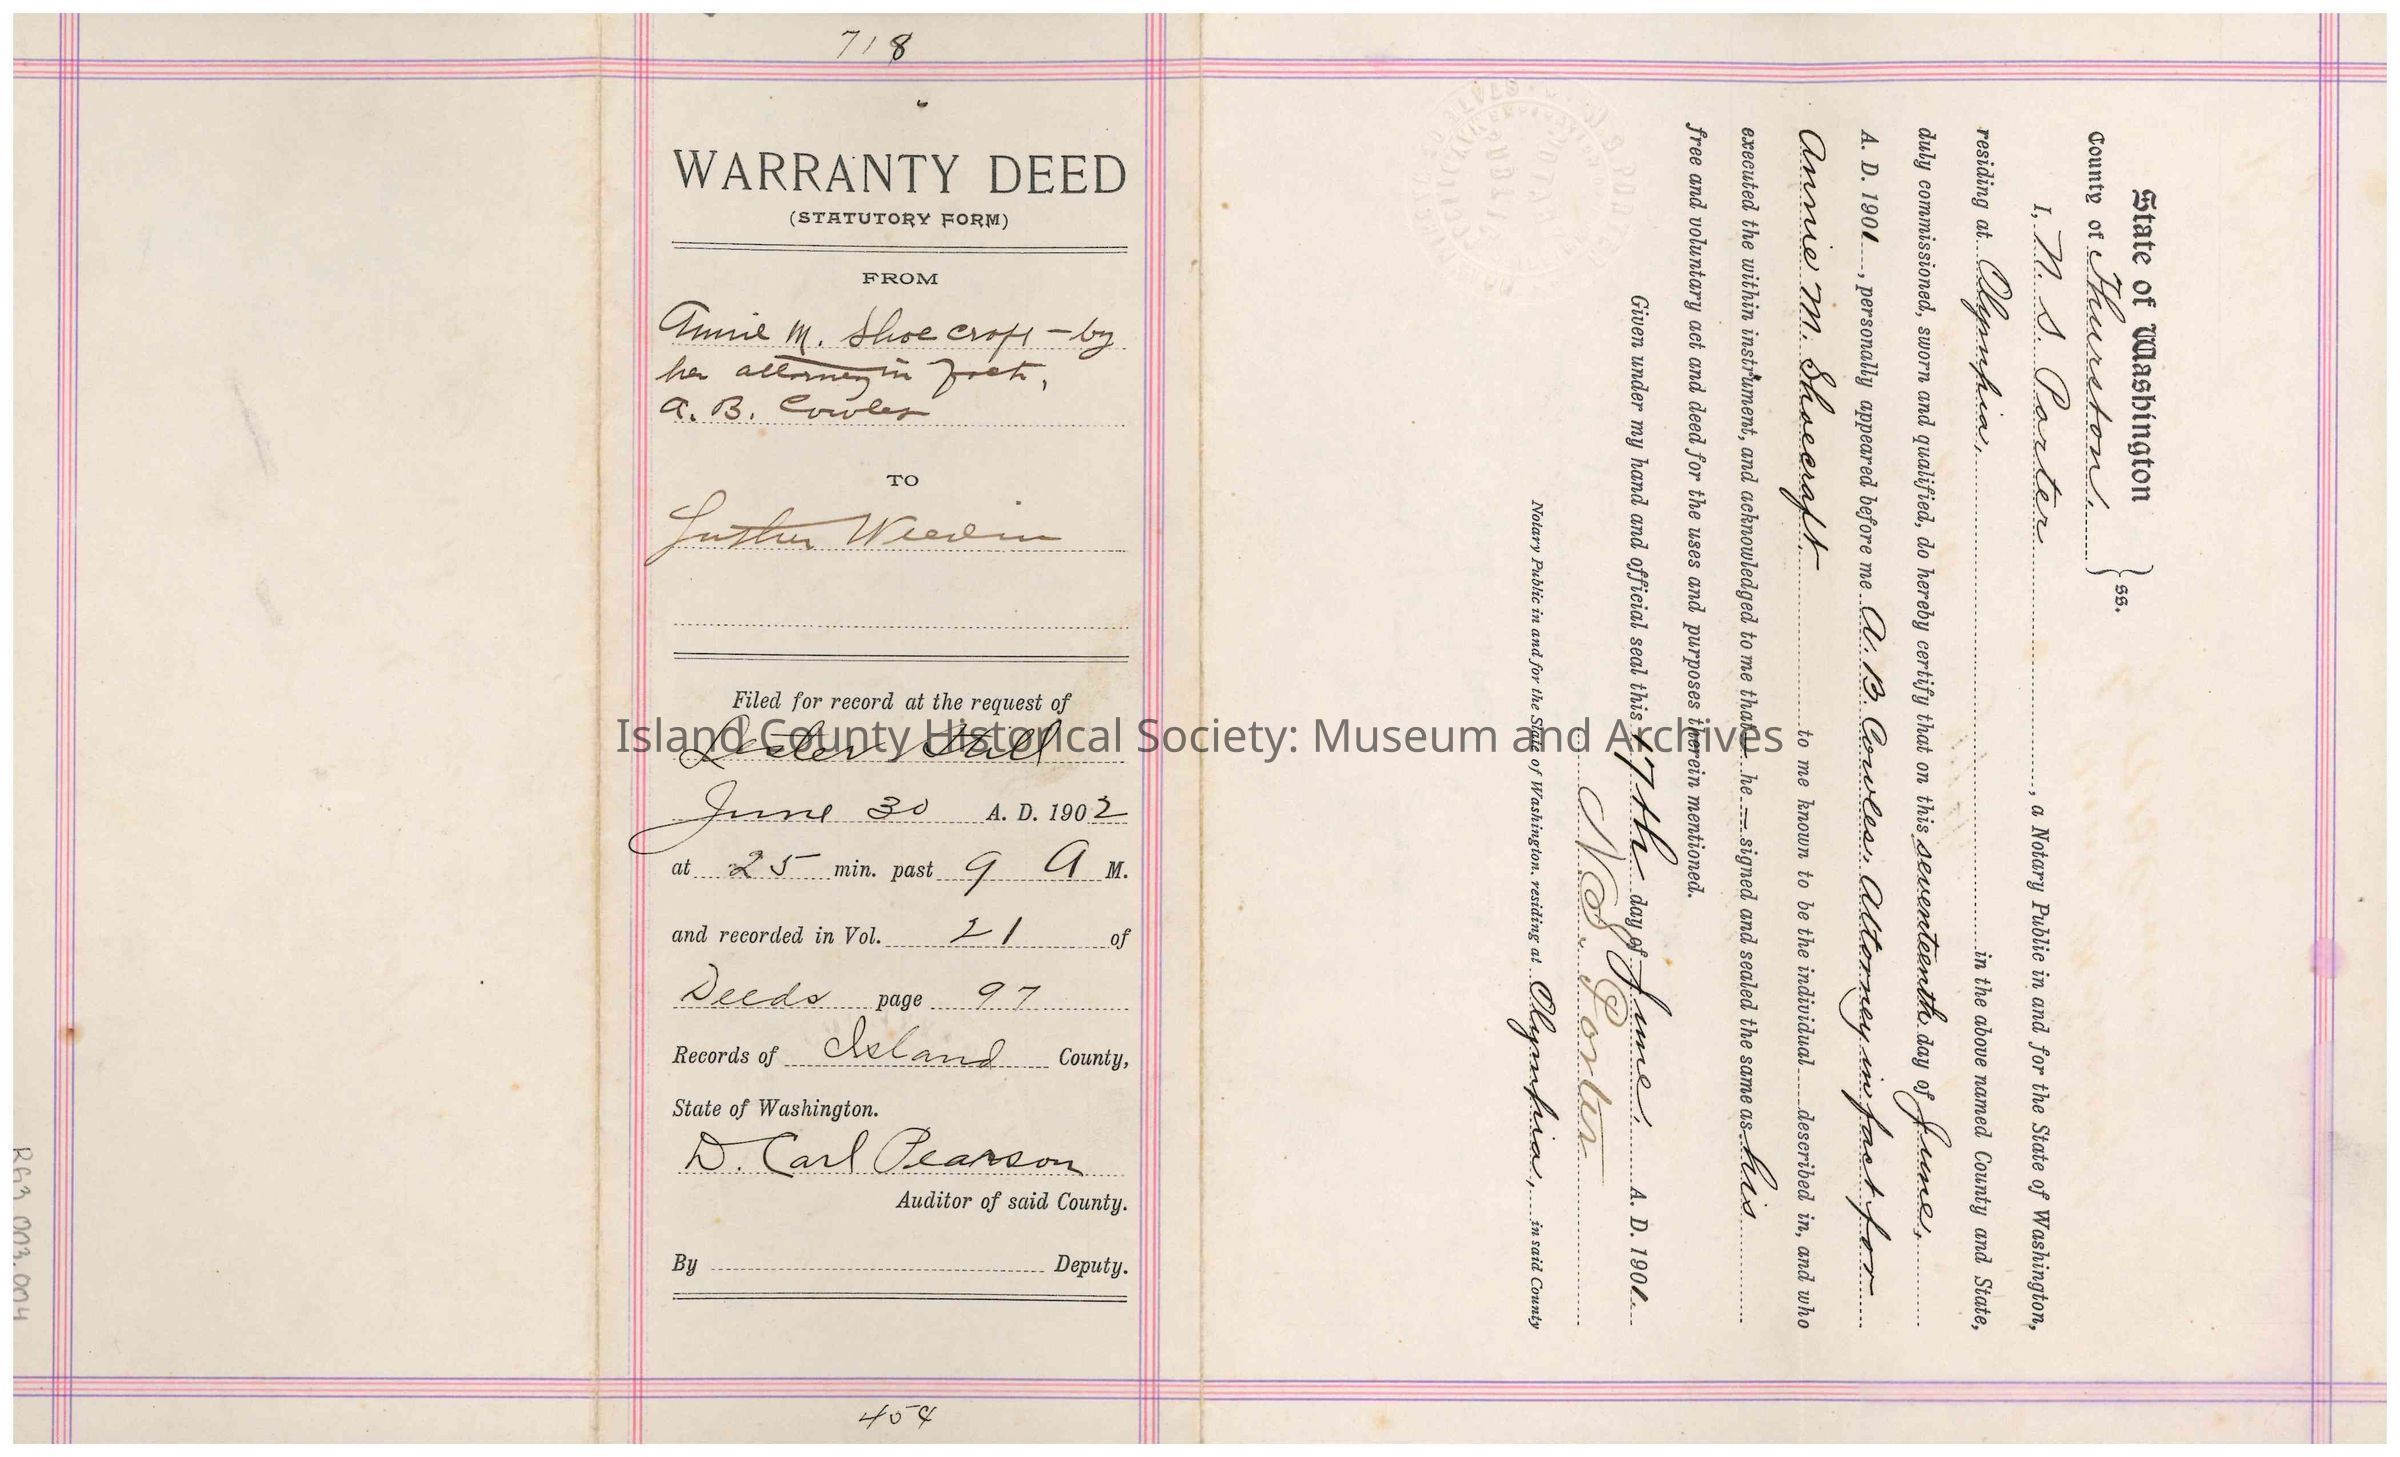 718
WARRANTY DEED
(STATUTORY FORM)
FROM
Annie M. Shoecraft - by
her attorney in fact,
A. B. Cowles
TO
Luther Weedin
Filed for record at the request of
Lester Still
June 30 A. D. 1902
at 25 min. past 9 A M.
and recorded in Vol. 21 of
Deeds page 97
Records of Island County,
State of Washington.
D. Carl Pearson
Auditor of said County.
By Deputy.
454
State of Washington
County of Thurston. } ss.
I, N. S. Porter, a Notary Public in and for the State of Washington,
residing at Olympia, in the above named County and State,
duly commissioned, sworn and qualified, do hereby certify that on this seventeenth day of June,
A. D. 1901, personally appeared before me A. B. Cowles, Attorney in fact for
Annie M. Shoecraft to me known to be the individual described in, and who
executed the within instrument, and acknowledged to me that he signed and sealed the same as his
free and voluntary act and deed for the uses and purposes therein mentioned.
Given under my hand and official seal this 17th day of June, A. D. 1901
N. S. Porter
Notary Public in and for the State of Washington, residing at Olympia, in said County
Island County Historical Society: Museum and Archives
RG3.003.004